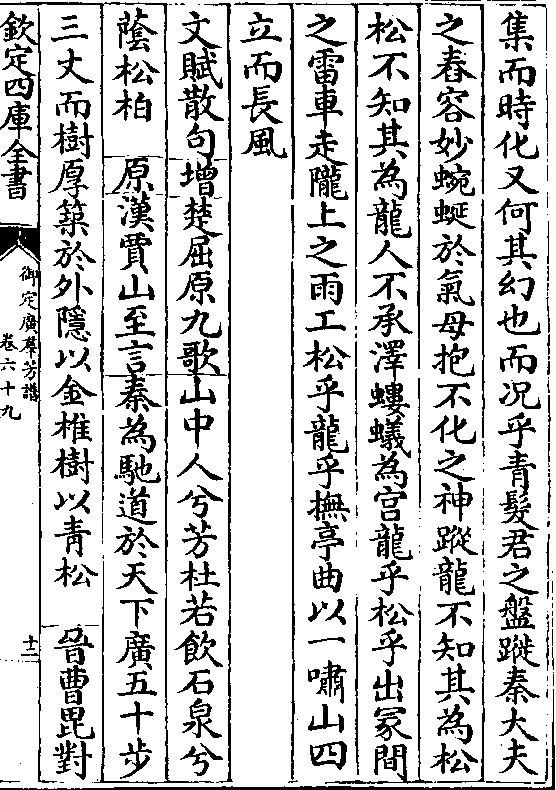 集而時化又何其幻也而况乎青髮君之盤蹤秦大夫
之舂容妙蜿蜒於氣母抱不化之神蹤龍不知其為松
松不知其為龍人不承澤螻蟻為宫龍乎松乎出冡間
之雷車走隴上之雨工松乎龍乎撫亭曲以一嘯山四
立而長風
文賦散句增楚屈原九歌山中人兮芳杜若飲石泉兮
蔭松柏　原漢賈山至言秦為馳道於天下廣五十步
三丈而樹厚築於外隱以金椎樹以青松　晉曹毘對
欽定四庫全書
御定廣羣芳譜
卷六十九
十二